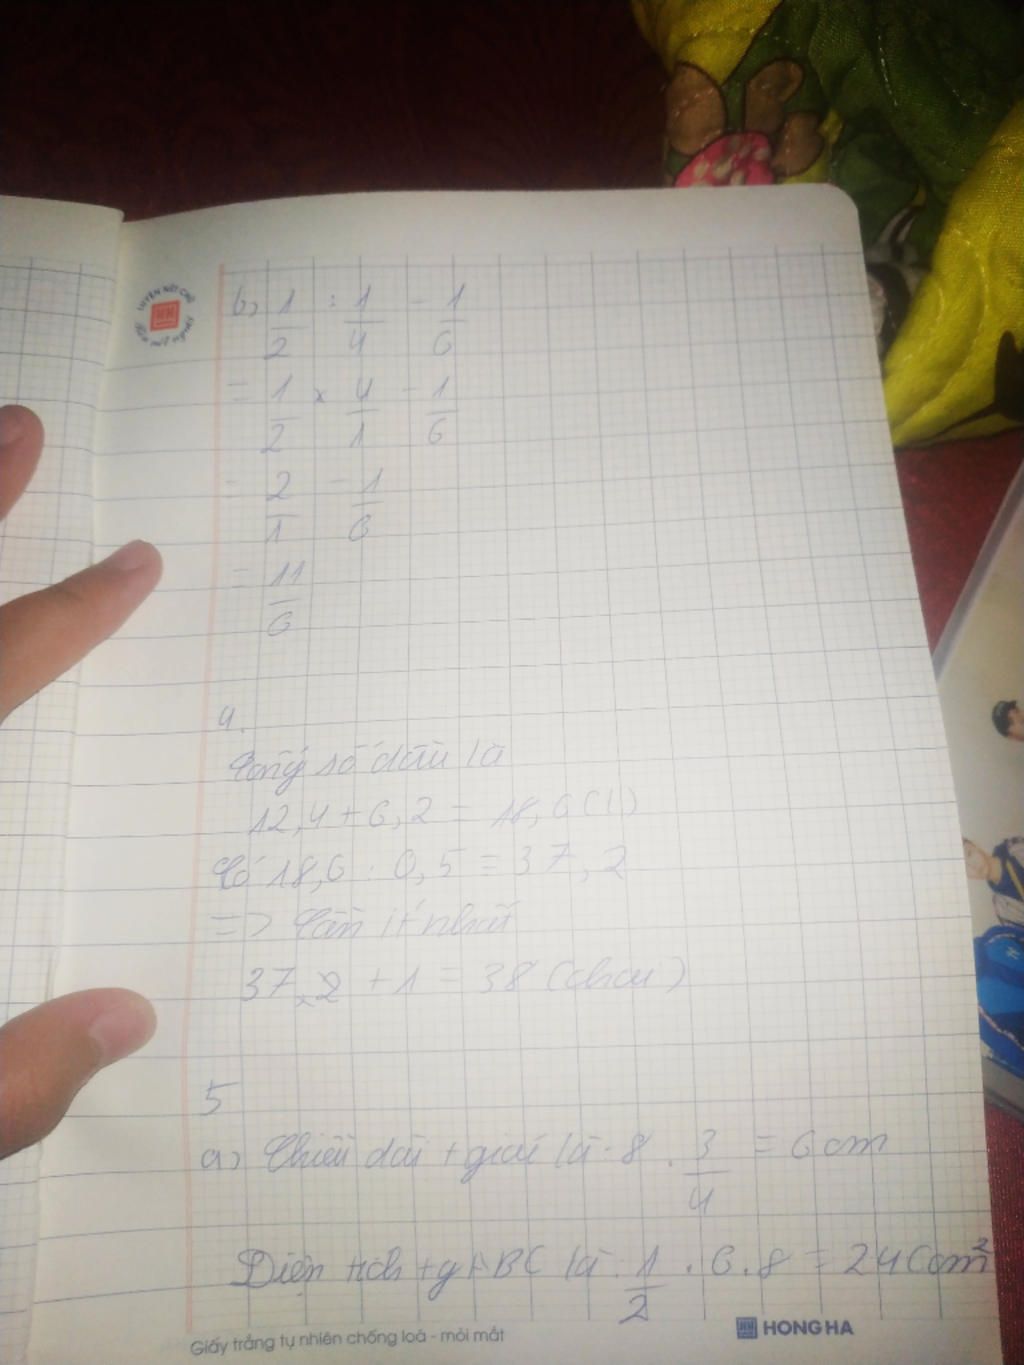 LUYỆN NÉT CHỮ
b) 1/2 : 1/4 - 1/6
= 1/2 x 4/1 - 1/6
= 2/1 - 1/6
= 11/6
4.
Tổng số dầu là
12,4 + 6,2 = 18,6 (l)
Có 18,6 : 0,5 = 37,2
=> Cần ít nhất
37,2 + 1 = 38 (chai)
5
a) Chiều dài + giác là: 8 . 3/4 = 6 cm
Diện tích +g ABC là: 1/2 . 6 . 8 = 24 (cm²
Giấy trắng tự nhiên chống loá - mỏi mắt
HONG HA